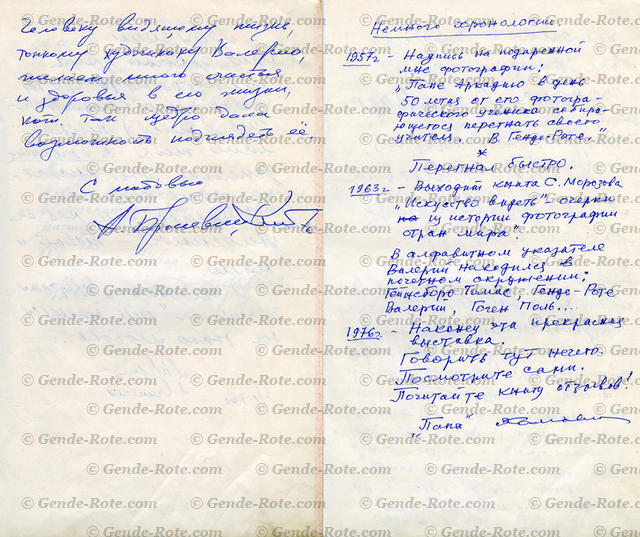 Человеку видящему жизнь,
тонкому художнику Валерию,
желаем много счастья
и здоровья в его жизни,
кот. так щедро дала
возможность подглядеть её.
С любовью
Немного хронологии
1957г – Надпись на подаренной
мне фотографии:
„Папе Аркадию в день
50 летая от его фотогра-
фического ученика собираю-
щегося перегнать своего
учителя. В. Генде-Роте."
*
Перегнал быстро.
1963г – Выходит книга С. Морозова
„Искусство видеть" очерки
из истории фотографии
стран мира".
В алфавитном указателе
Валерий находился в
почетном окружении:
Гейнсборо Томас, Генде-Роте
Валерий, Гоген Поль...
1976г. – Наконец эта прекрасная
выставка.
Говорить тут нечего.
Посмотрите сами.
Почитайте книгу отзывов!
„Папа"
© Gende-Rote.com